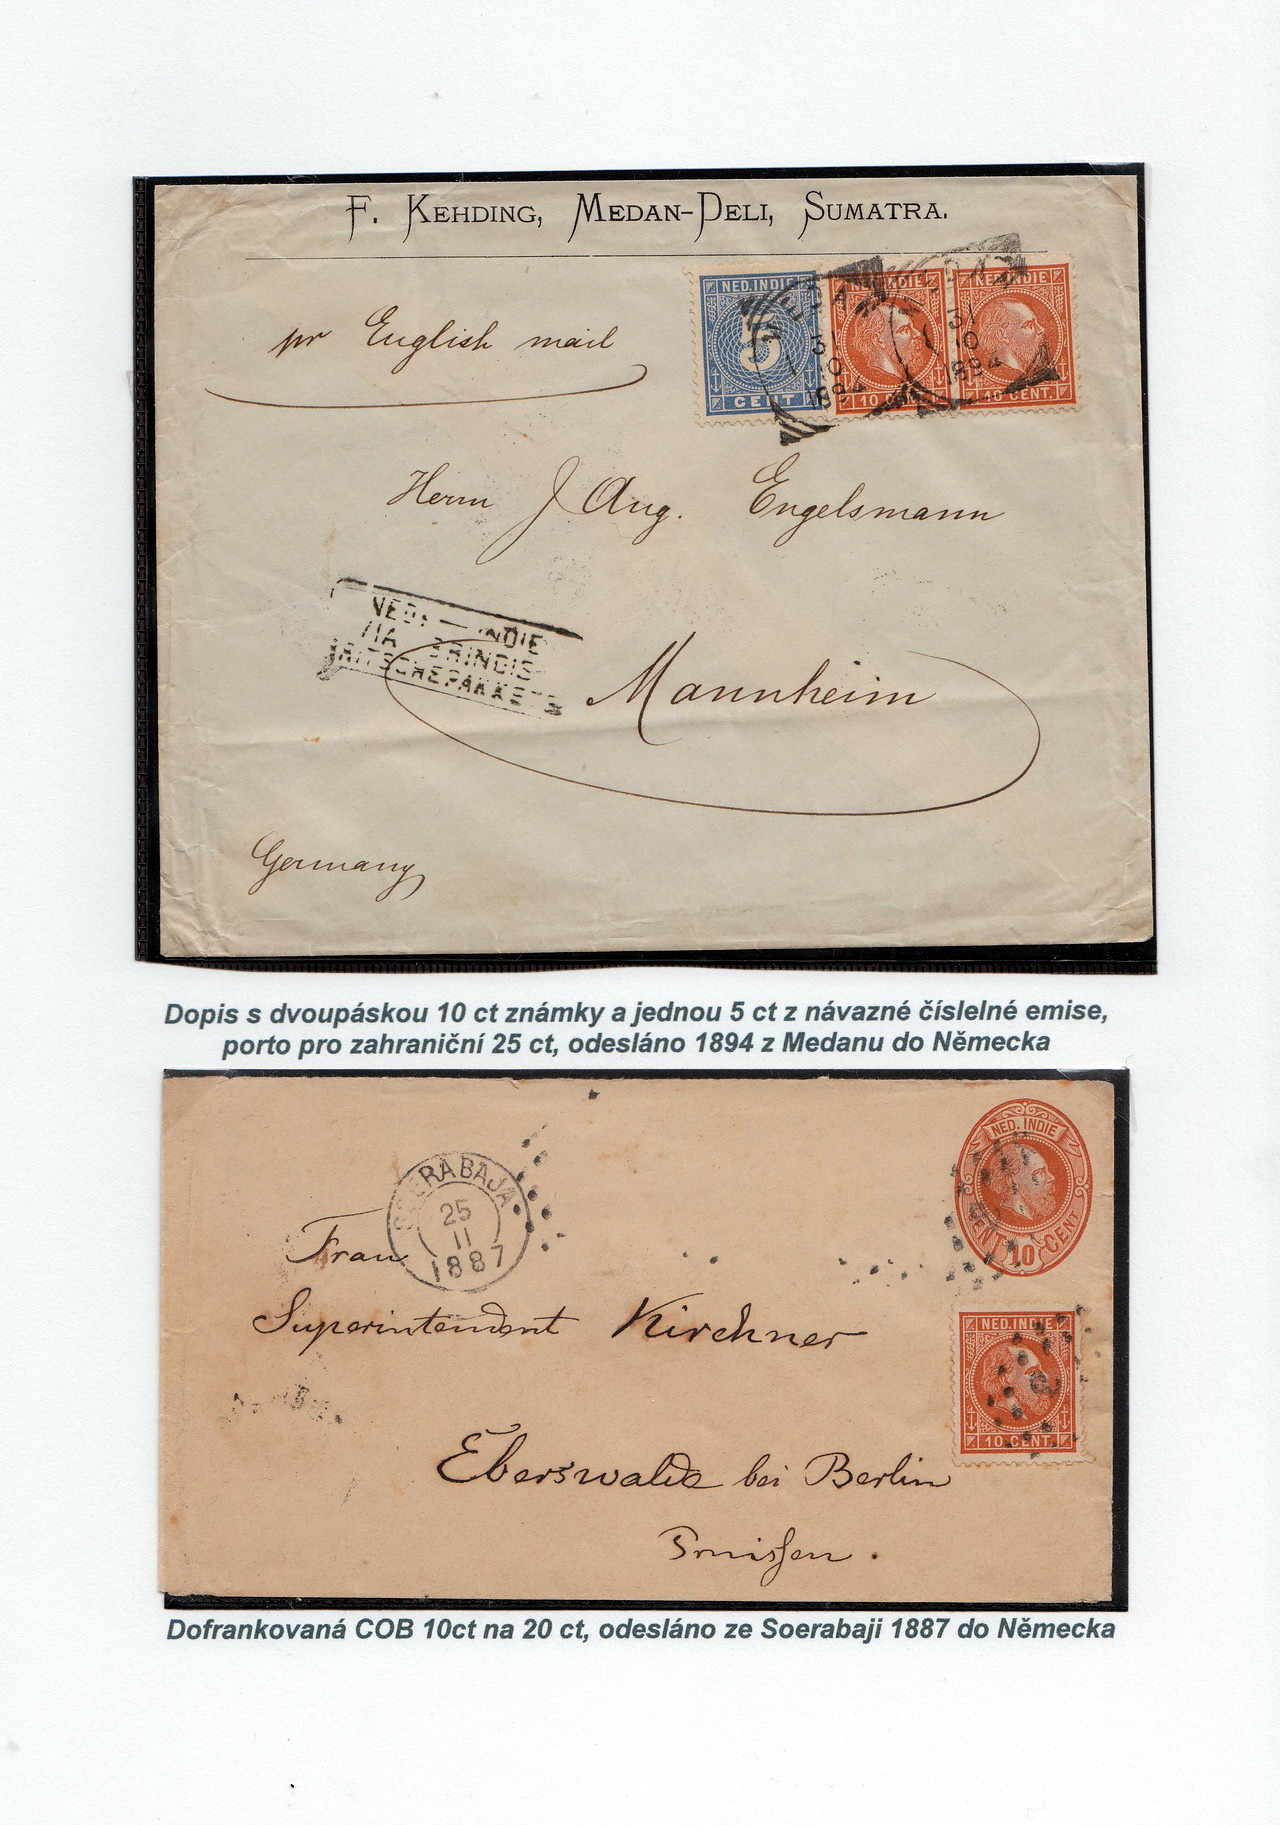 F. KEHDING, MEDAN-DELI, SUMATRA.
pr English mail
NED. INDIE
5
CENT
NED. INDIE
10 CENT.
NED. INDIE
10 CENT.
31
10
1894
31
10
1894
Herrn J Aug. Engelsmann
NED: — INDIE
VIA BRINDIS
BRITSCHEPAKKETS
Mannheim
Germany
Dopis s dvoupáskou 10 ct známky a jednou 5 ct z návazné číslelné emise,
porto pro zahraniční 25 ct, odesláno 1894 z Medanu do Německa
NED. INDIE
CENT 10 CENT
SOERABAJA
25
11
1887
Frau
Superintendent Kirchner
NED. INDIE
10 CENT.
Eberswalde bei Berlin
Dofrankovaná COB 10ct na 20 ct, odesláno ze Soerabaji 1887 do Německa